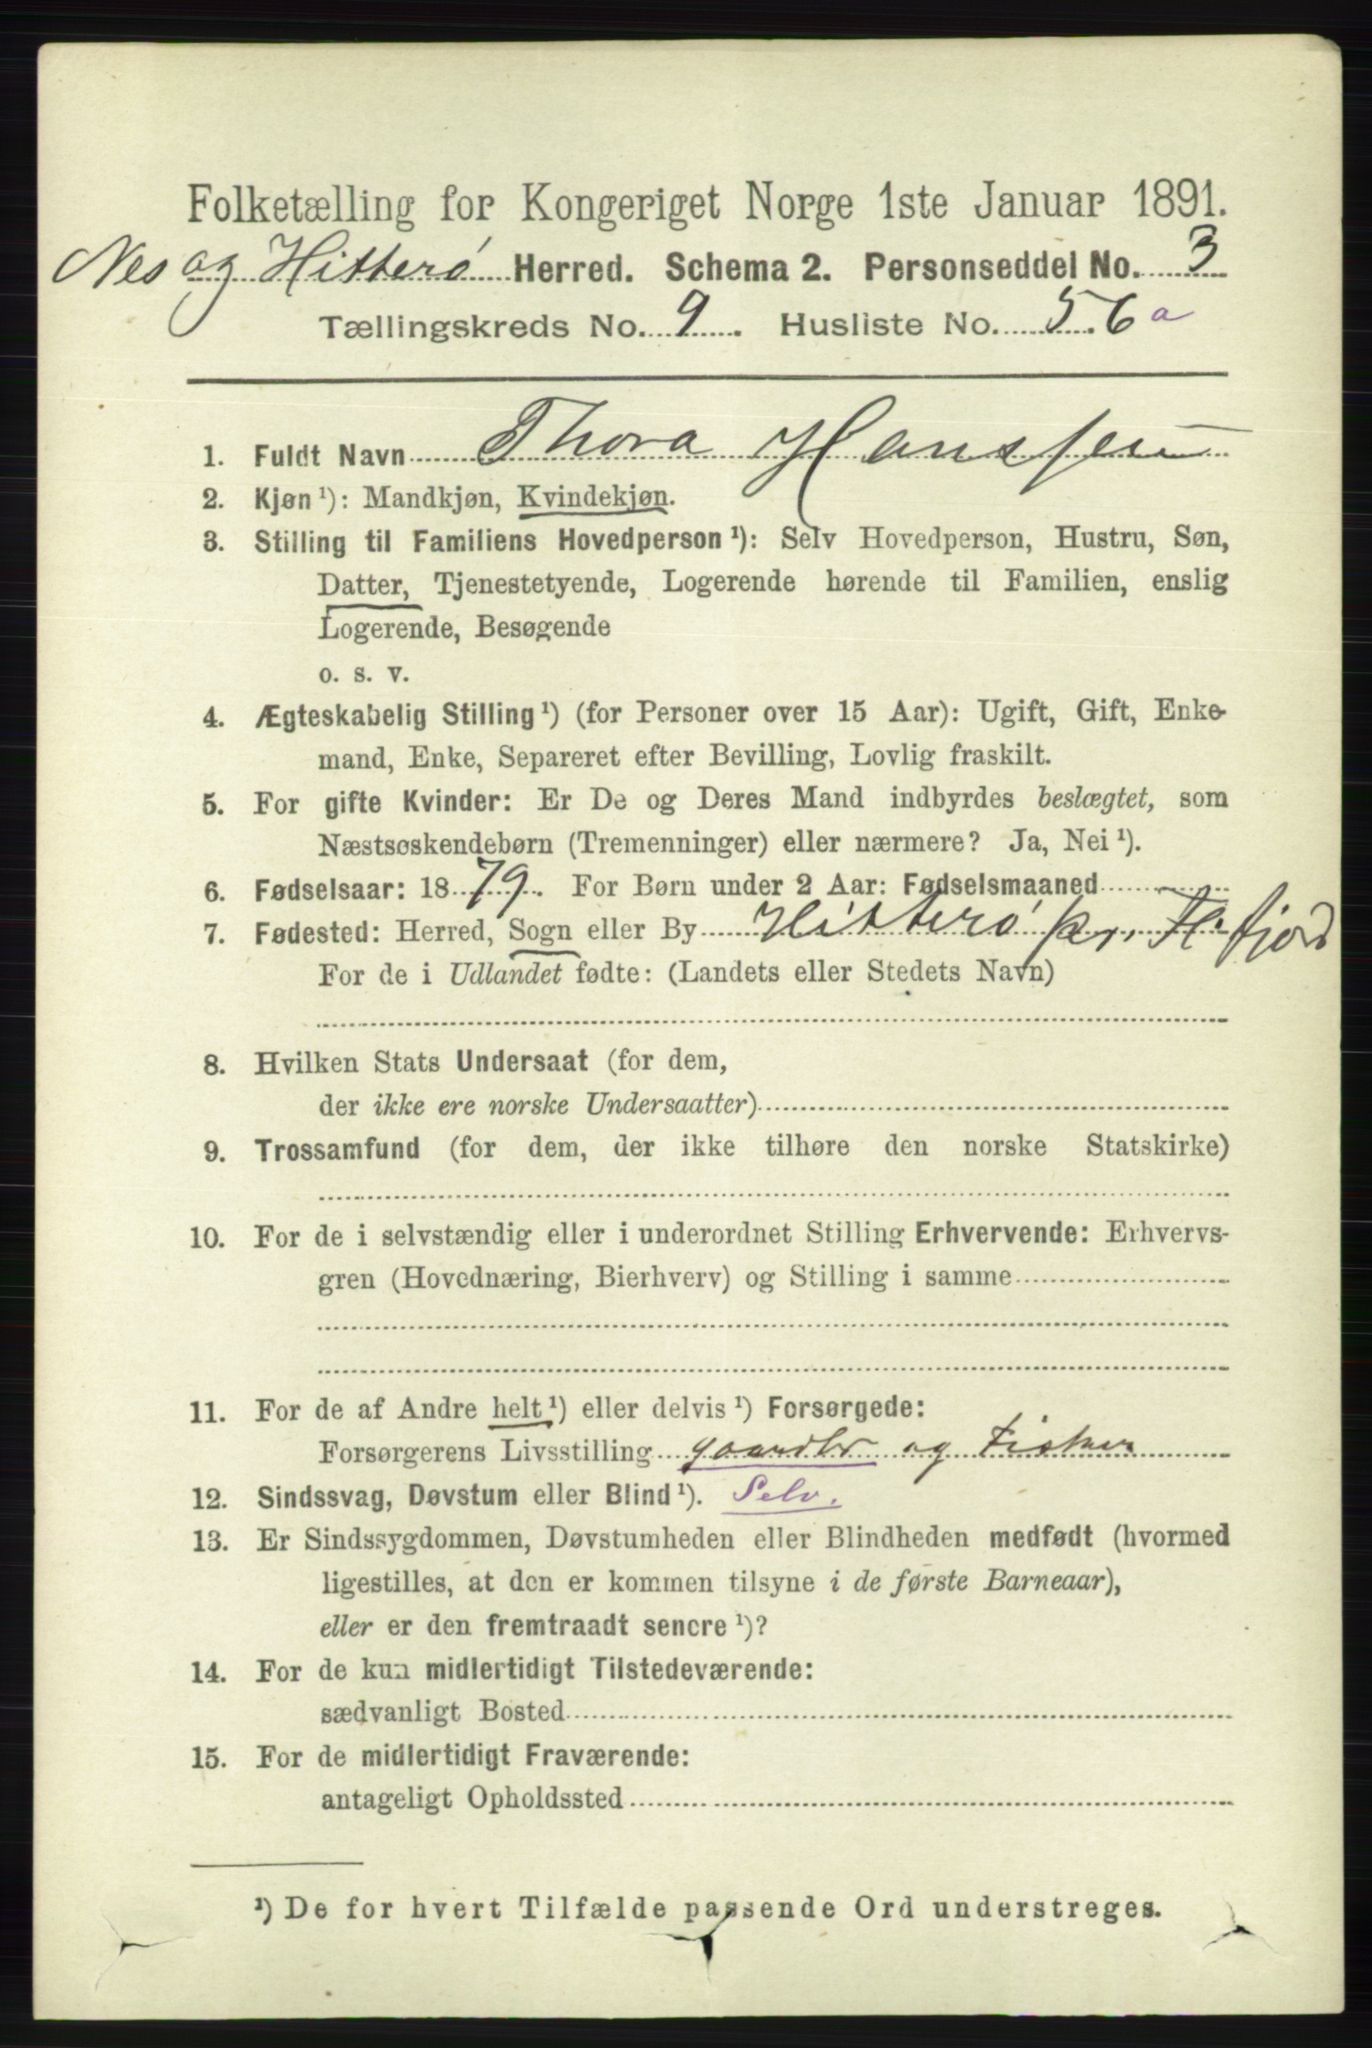 Folketælling for Kongeriget Norge 1ste Januar 1891.
Nes og Hitterø Herred. Schema 2. Personseddel No. 3
Tællingskreds No. 9. Husliste No. 56a
1. Fuldt Navn Thora Hanssen
2. Kjøn ¹): Mandkjøn, Kvindekjøn.
3. Stilling til Familiens Hovedperson ¹): Selv Hovedperson, Hustru, Søn,
Datter, Tjenestetyende, Logerende hørende til Familien, enslig
Logerende, Besøgende
o. s. v.
4. Ægteskabelig Stilling ¹) (for Personer over 15 Aar): Ugift, Gift, Enke-
mand, Enke, Separeret efter Bevilling, Lovlig fraskilt.
5. For gifte Kvinder: Er De og Deres Mand indbyrdes beslægtet, som
Næstsøskendebørn (Tremenninger) eller nærmere? Ja, Nei ¹).
6. Fødselsaar: 1879. For Børn under 2 Aar: Fødselsmaaned
7. Fødested: Herred, Sogn eller By Hitterø pr. Fl.fjord
For de i Udlandet fødte: (Landets eller Stedets Navn)
8. Hvilken Stats Undersaat (for dem,
der ikke ere norske Undersaatter)
9. Trossamfund (for dem, der ikke tilhøre den norske Statskirke)
10. For de i selvstændig eller i underordnet Stilling Erhvervende: Erhvervs-
gren (Hovednæring, Bierhverv) og Stilling i samme
11. For de af Andre helt ¹) eller delvis ¹) Forsørgede:
Forsørgerens Livsstilling gaardbr og Fisker
12. Sindssvag, Døvstum eller Blind ¹). Selv.
13. Er Sindssygdommen, Døvstumheden eller Blindheden medfødt (hvormed
ligestilles, at den er kommen tilsyne i de første Barneaar),
eller er den fremtraadt senere ¹)?
14. For de kun midlertidigt Tilstedeværende:
sædvanligt Bosted
15. For de midlertidigt Fraværende:
antageligt Opholdssted
¹) De for hvert Tilfælde passende Ord understreges.